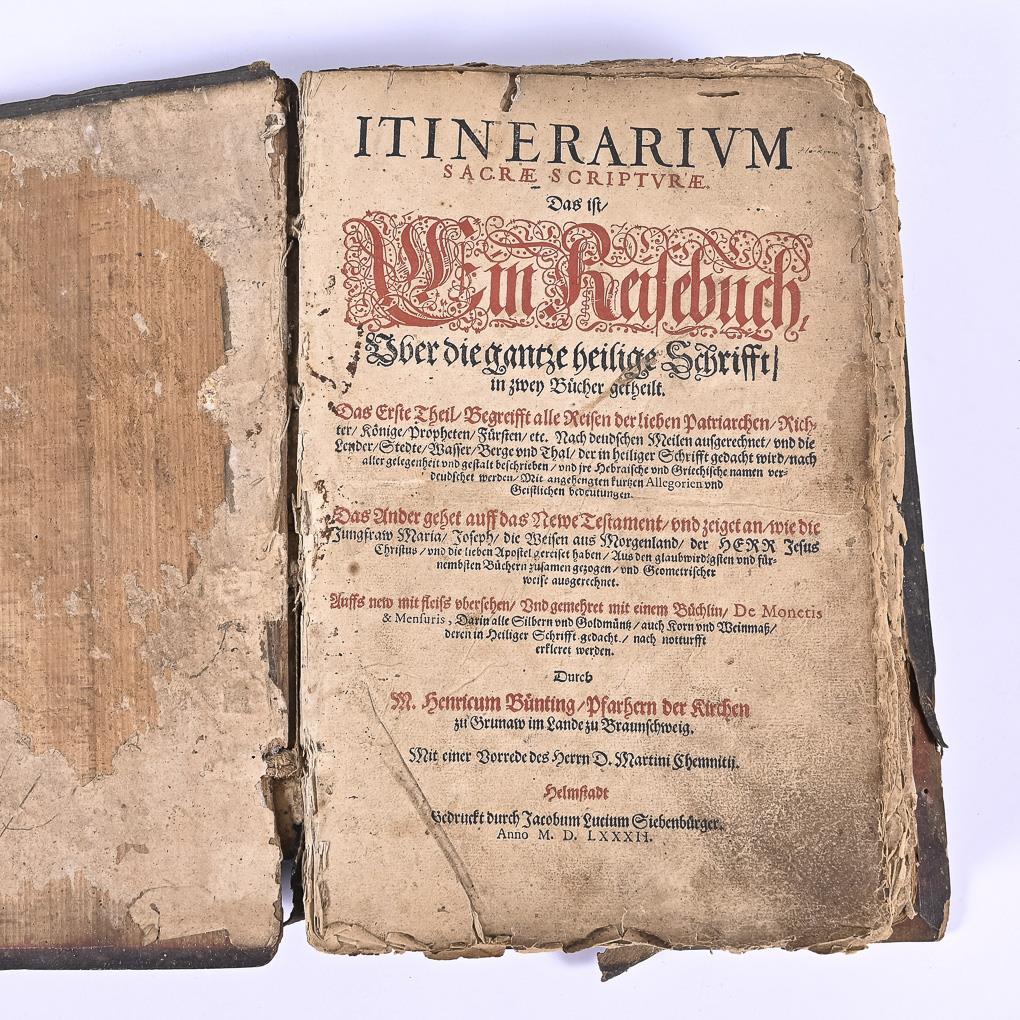 ITINERARIVM
SACRÆ SCRIPTVRÆ.
Das ist/
Ein Reisebuch,
Vber die gantze heilige Schrifft/
in zwey Bücher getheilt.
Das Erste Theil/ Begreifft alle Reisen der lieben Patriarchen/ Rich-
ter/ Könige/ Propheten/ Fürsten/ etc. Nach deudschen Meilen ausgerechnet/ vnd die
Lender/ Stedte/ Wasser/ Berge vnd Thal/ der in heiliger Schrifft gedacht wird/ nach
aller gelegenheit vnd gestalt beschrieben/ vnd jre Hebraische vnd Griechische namen ver-
deudschet werden/ Mit angehengten kurtzen Allegorien vnd
Geistlichen bedeutungen.
Das Ander gehet auff das Newe Testament/ vnd zeiget an/ wie die
Jungfraw Maria/ Joseph/ die Weisen aus Morgenland/ der HERR Jesus
Christus/ vnd die lieben Apostel gereiset haben/ Aus den glaubwirdigsten vnd für-
nembsten Büchern zusamen gezogen/ vnd Geometrischer
weise ausgerechnet.
Auffs new mit fleiss vbersehen/ Vnd gemehret mit einem Büchlin/ De Monetis
& Mensuris, Darin alle Silbern vnd Goldmüntz/ auch Korn vnd Weinmaß/
deren in Heiliger Schrifft gedacht/ nach notturfft
erkleret werden.
Durch
M. Henricum Bünting/ Pfarhern der Kirchen
zu Grunaw im Lande zu Braunschweig.
Mit einer Vorrede des Herrn D. Martini Chemnitij.
Helmstadt
Gedruckt durch Jacobum Lucium Siebenbürger.
Anno M. D. LXXXII.